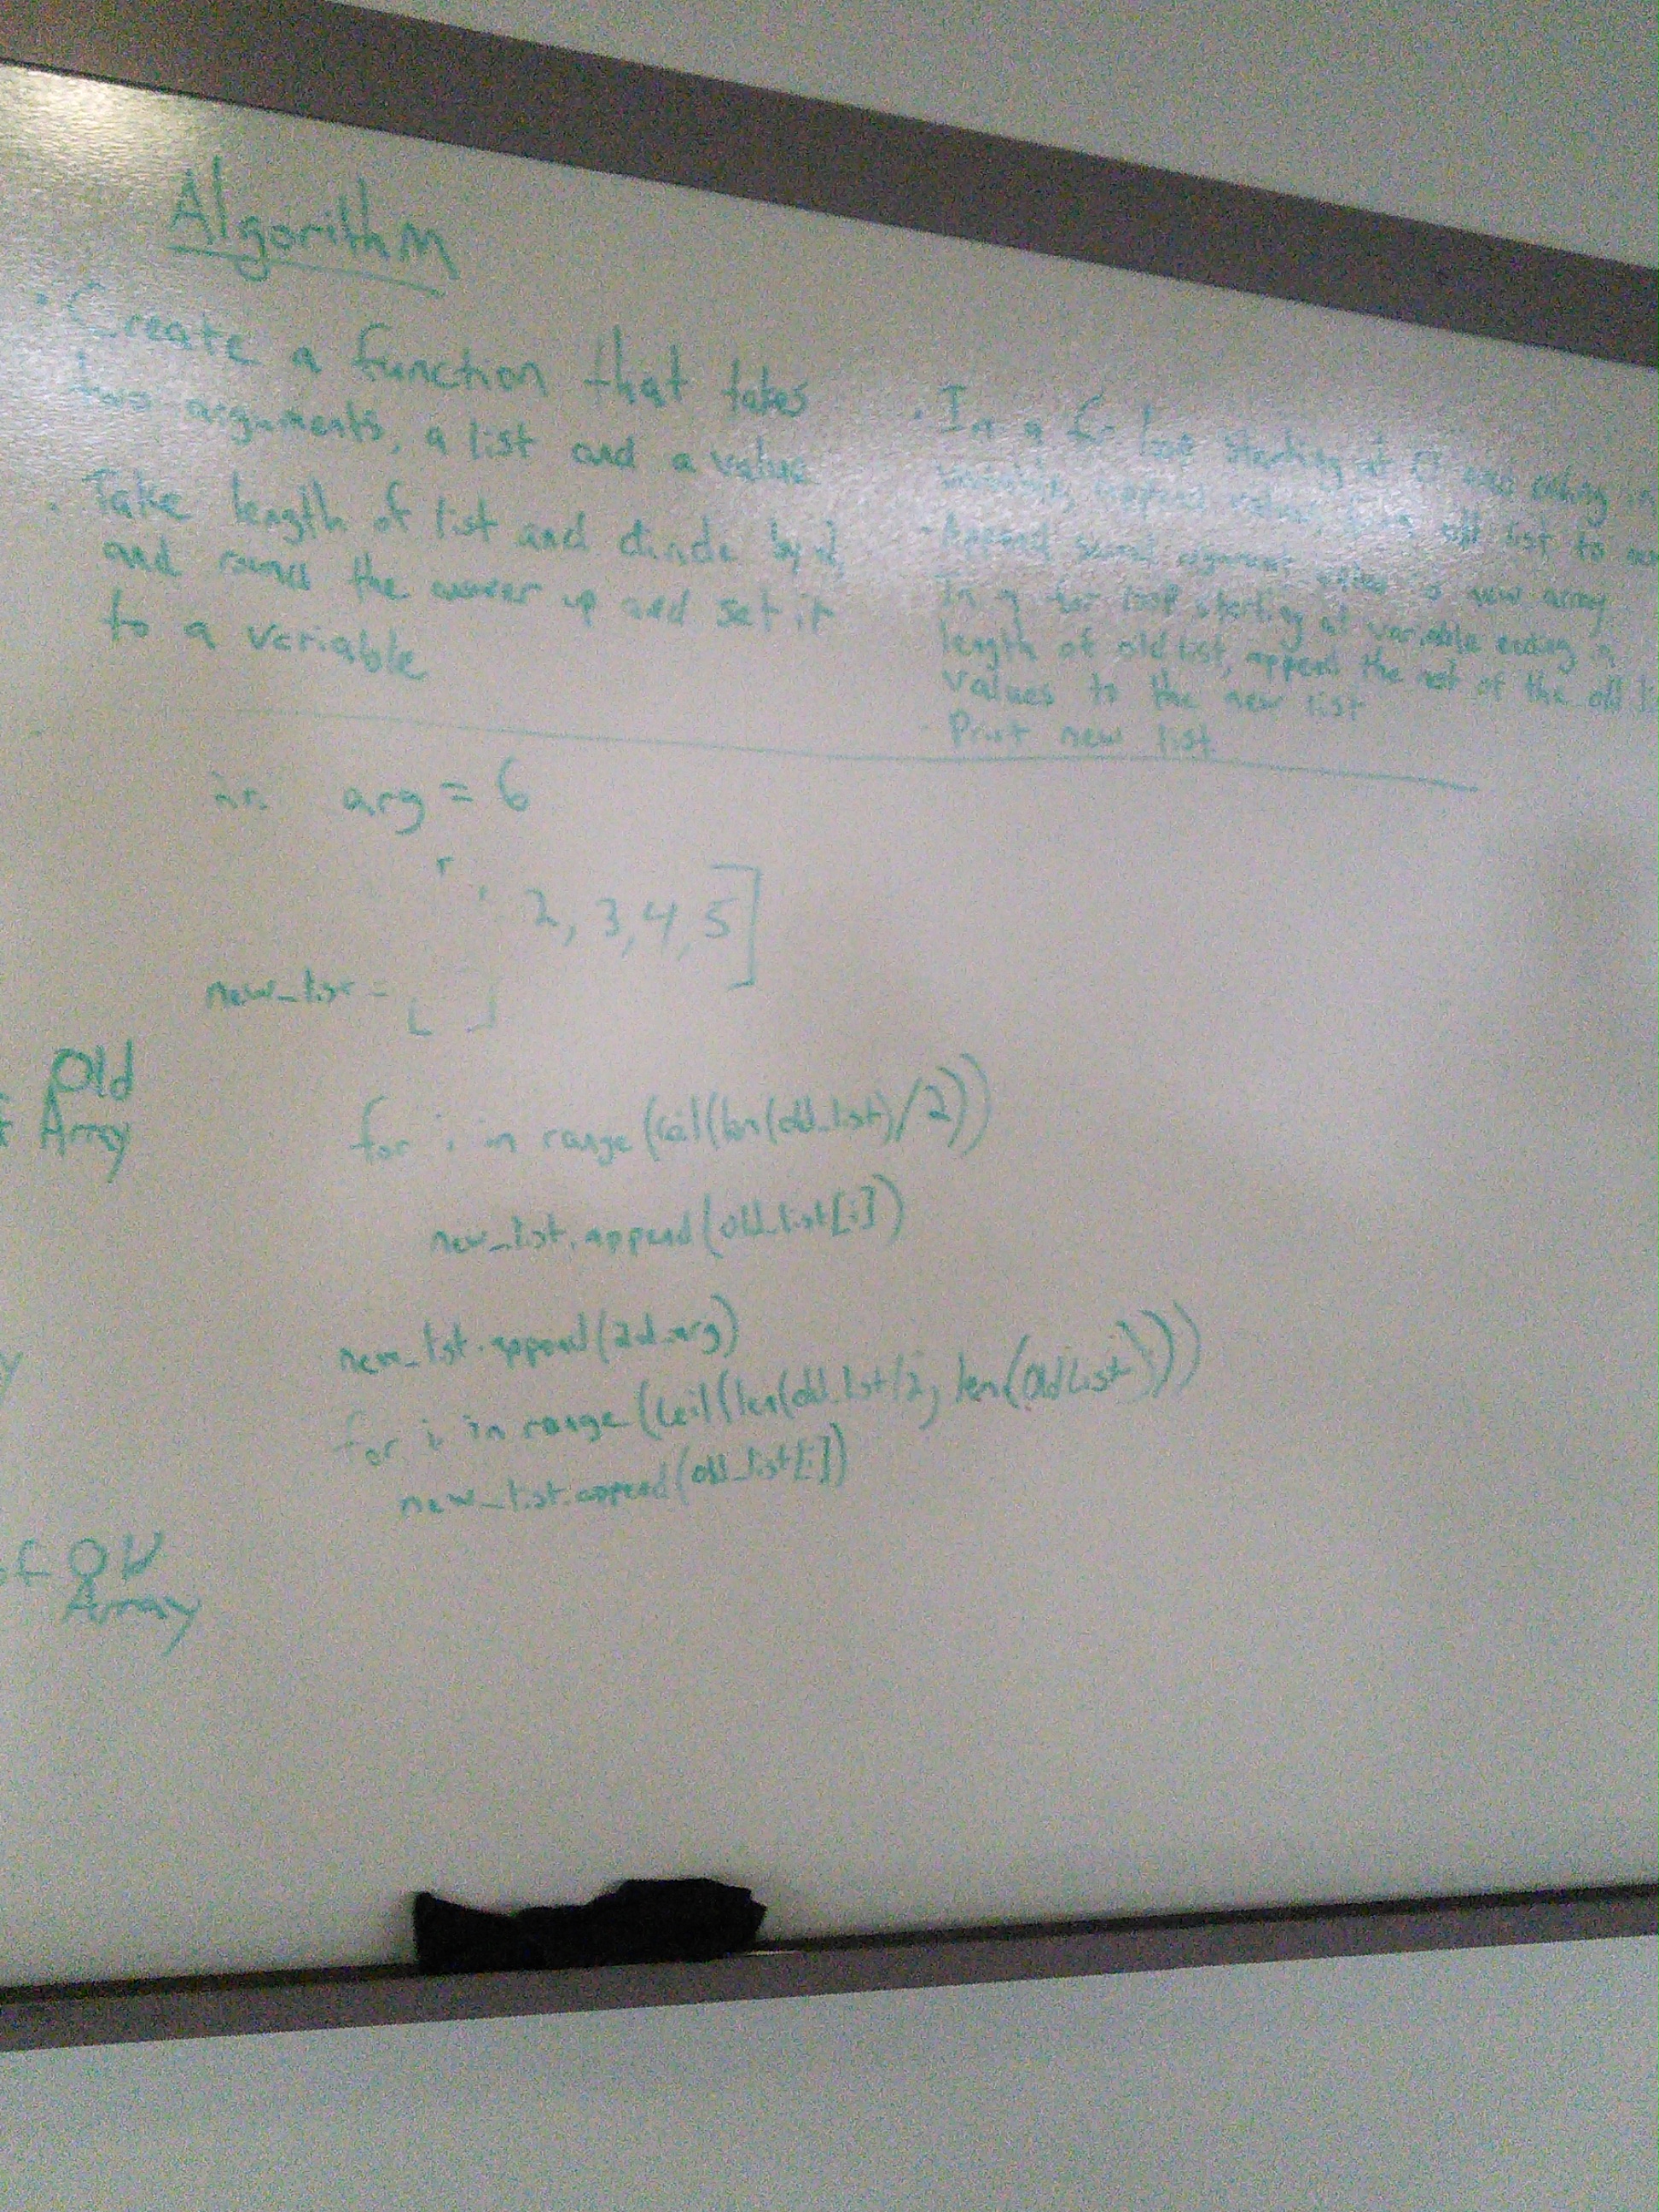 Algorithm
· Create a function that takes
two arguments, a list and a value
· Take length of list and divide by 2,
and round the answer up and set it
to a variable
· In a for loop starting at 0 and ending in
variable, append values from old list to
· Append second argument value to new array
In a for loop starting at variable ending in
length of old list, append the rest of the old
values to the new list
· Print new list
arg = 6
2, 3, 4, 5]
new_list = [ ]
Old
Array
for i in range(ceil(len(old_list)/2))
new_list.append(old_list[i])
new_list.append(2d_arg)
for i in range(ceil(len(old_list/2, len(OldList)))
new_list.append(old_list[i])
of Old
Array